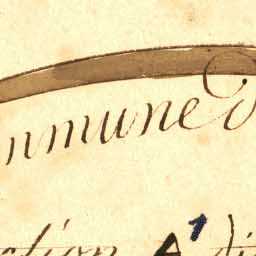 ommune d
ction A 1 di